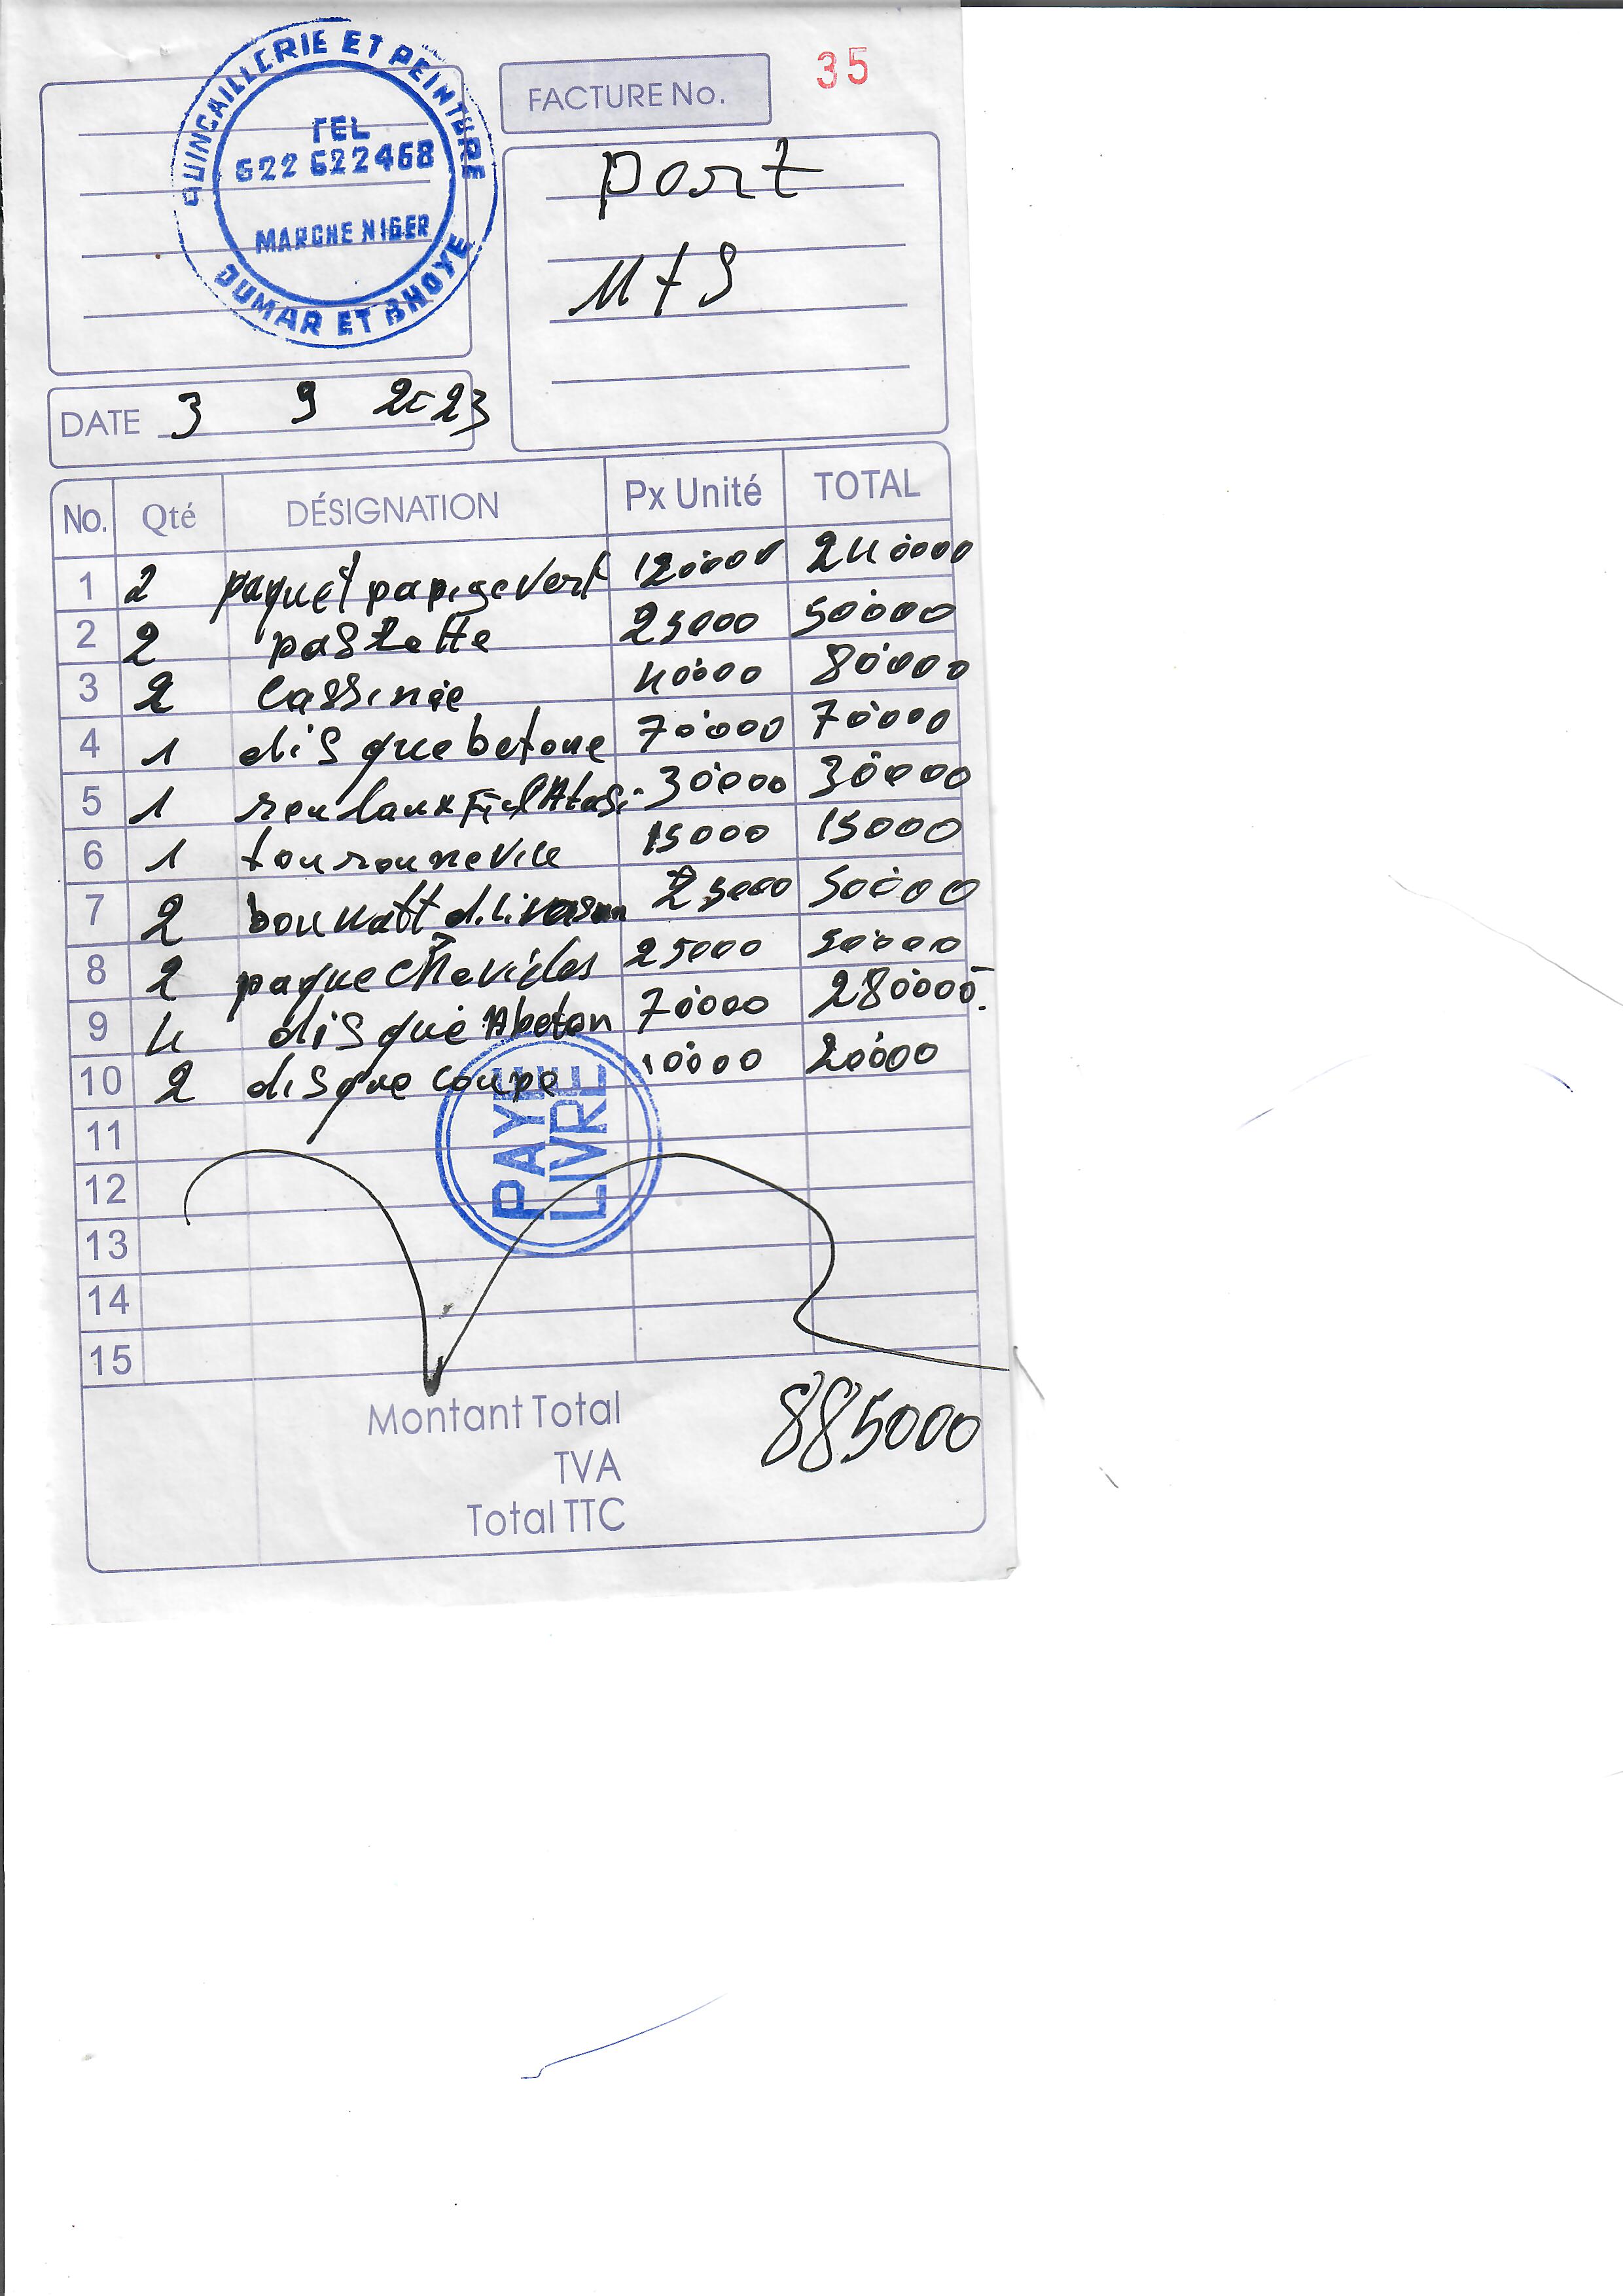 QUINCAILLERIE ET PEINTURE
TEL
622 622468
MARCHE NIGER
OUMAR ET BHOYE
FACTURE No. 35
port
MTS
DATE 3 9 2023
No. Qté DÉSIGNATION Px Unité TOTAL
1 2 paquet papige vert 120000 240000
2 2 paslette 25000 50000
3 2 cassinée 40000 80000
4 1 disque betone 70000 70000
5 1 roulaux 30000 30000
6 1 touronnevile 15000 15000
7 2 25000 50000
8 2 paque chevicles 25000 50000
9 4 disque Abeton 70000 280000
10 2 disque coupe 10000 20000
11
12
13
14
15
PAYE
LIVRE
Montant Total 885000
TVA
Total TTC